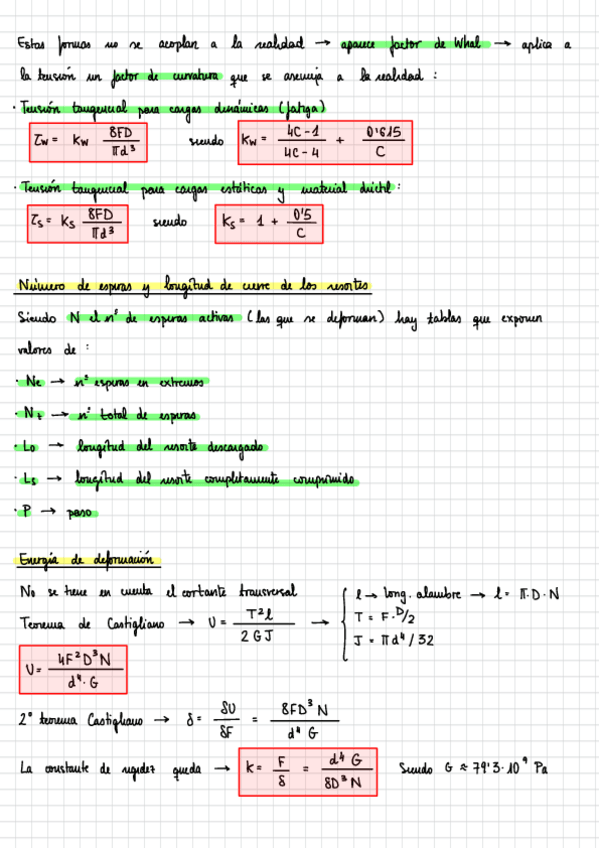 Estas formas no se acoplan a la realidad → aparece factor de Whal → aplica a
la tensión un factor de curvatura que se asemeja a la realidad :
· Tensión tangencial para cargas dinámicas (fatiga)
τw = Kw 8FD / πd³ siendo Kw = 4C-1 / 4C-4 + 0'615 / C
· Tensión tangencial para cargas estáticas y material dúctil :
τs = Ks 8FD / πd³ siendo Ks = 1 + 0'5 / C
Número de espiras y longitud de cierre de los resortes
Siendo N el nº de espiras activas (las que se deforman) hay tablas que exponen
valores de :
· Ne → nº espiras en extremos
· Nt → nº total de espiras
· Lo → longitud del resorte descargado
· Ls → longitud del resorte completamente comprimido
· P → paso
Energía de deformación
No se tiene en cuenta el cortante transversal
Teorema de Castigliano → U = T²l / 2GJ →
l → long. alambre → l = π·D·N
T = F·D/2
J = πd⁴/32
U = 4F²D³N / d⁴·G
2º teorema Castigliano → δ = δU / δF = 8FD³N / d⁴ G
La constante de rigidez queda → k = F / δ = d⁴ G / 8D³N Siendo G ≈ 79'3·10⁹ Pa